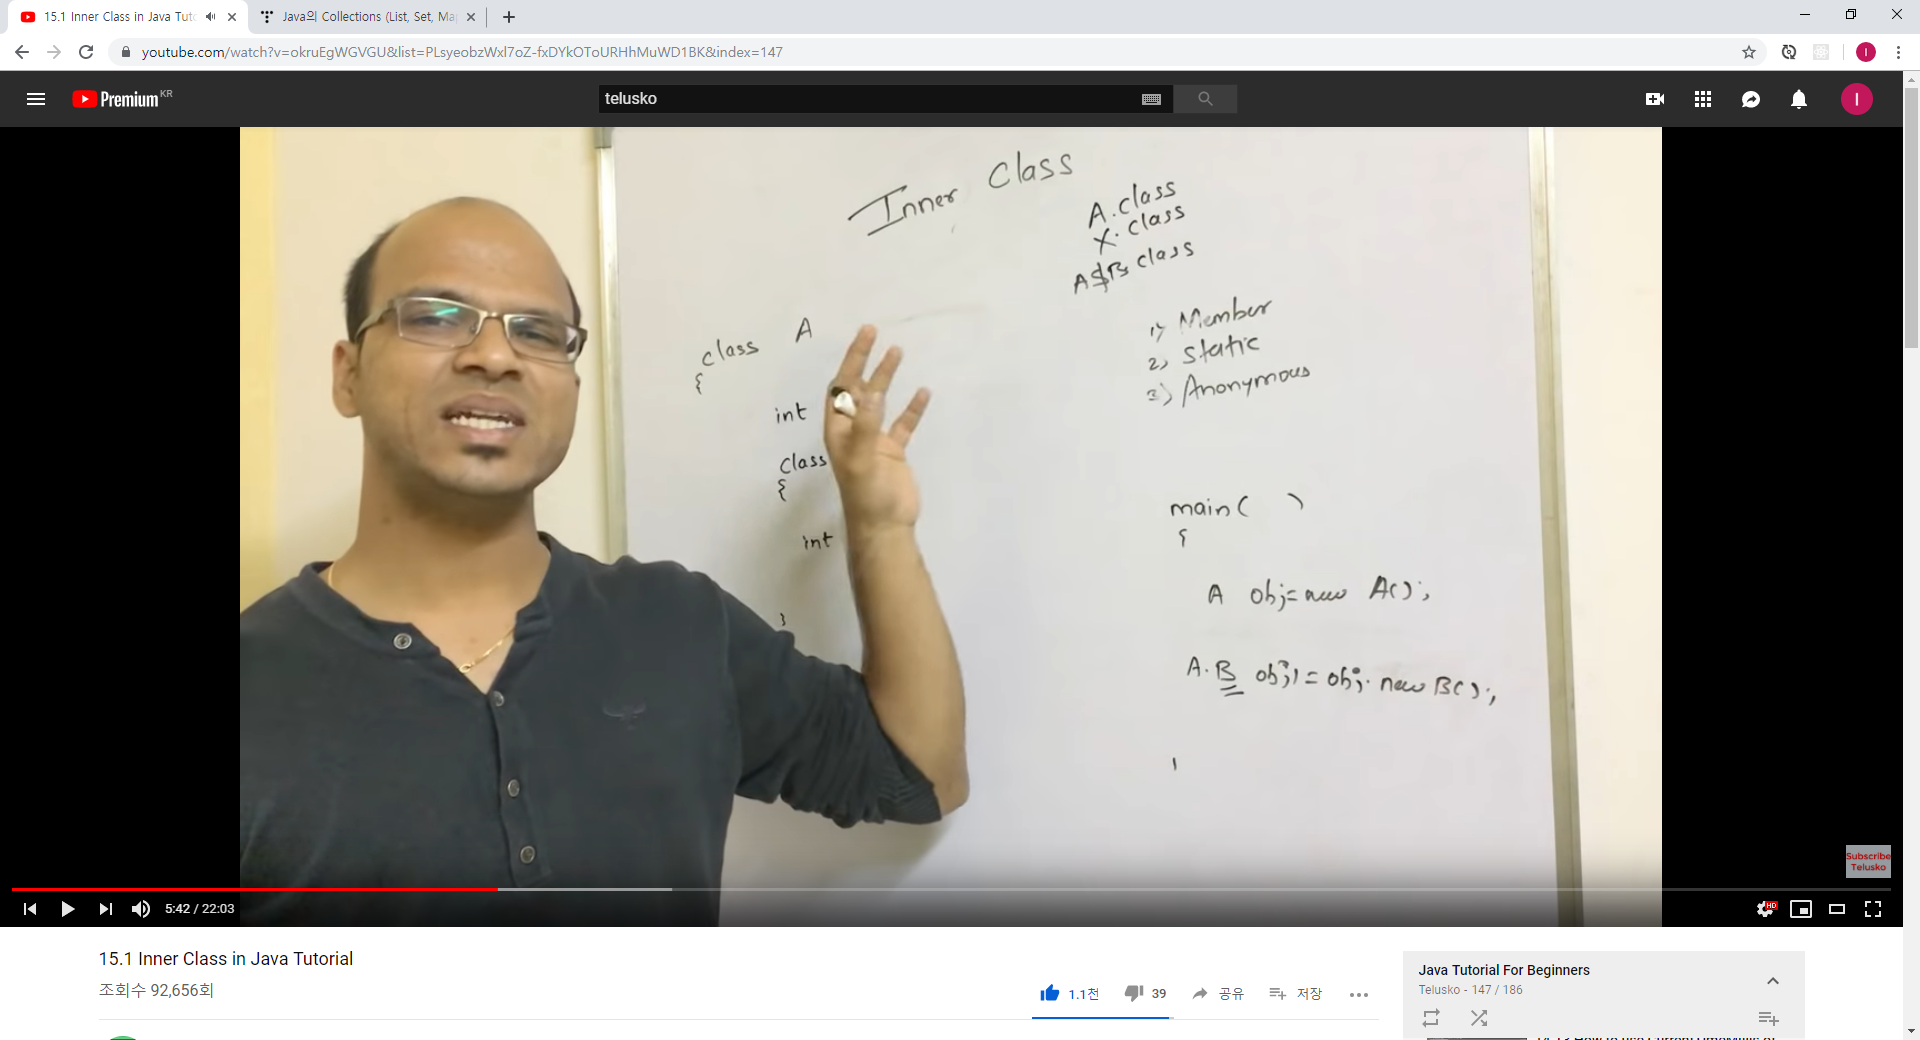 15.1 Inner Class in Java Tuto
Java의 Collections (List, Set, Ma
youtube.com/watch?v=okruEgWGVGU&list=PLsyeobzWxl7oZ-fxDYkOToURHhMuWD1BK&index=147
I
Premium KR
telusko
I
Inner Class
A.class
X.class
A$B class
class A
{
1) Member
2) Static
3) Anonymous
int
class
{
int
}
main( )
{
A obj=new A();
A.B obj1=obj.new B();
Subscribe
Telusko
5:42 / 22:03
HD
15.1 Inner Class in Java Tutorial
조회수 92,656회
1.1천
39
공유
저장
Java Tutorial For Beginners
Telusko - 147 / 186